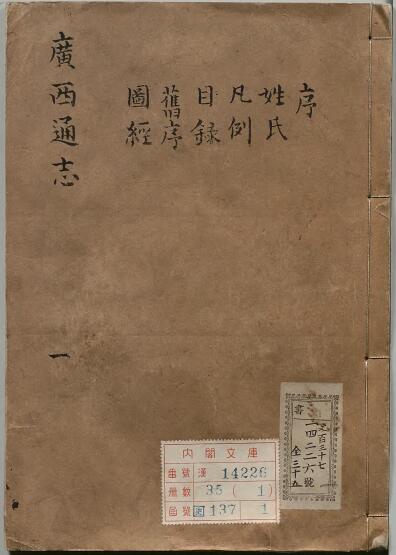 廣西通志
一
序
姓氏
凡例
目録
舊序
圖經
內閣文庫
番號 漢 14226
冊數 35 (1)
函號 137 1
書
一四二二六號
史百三十七
全三十五